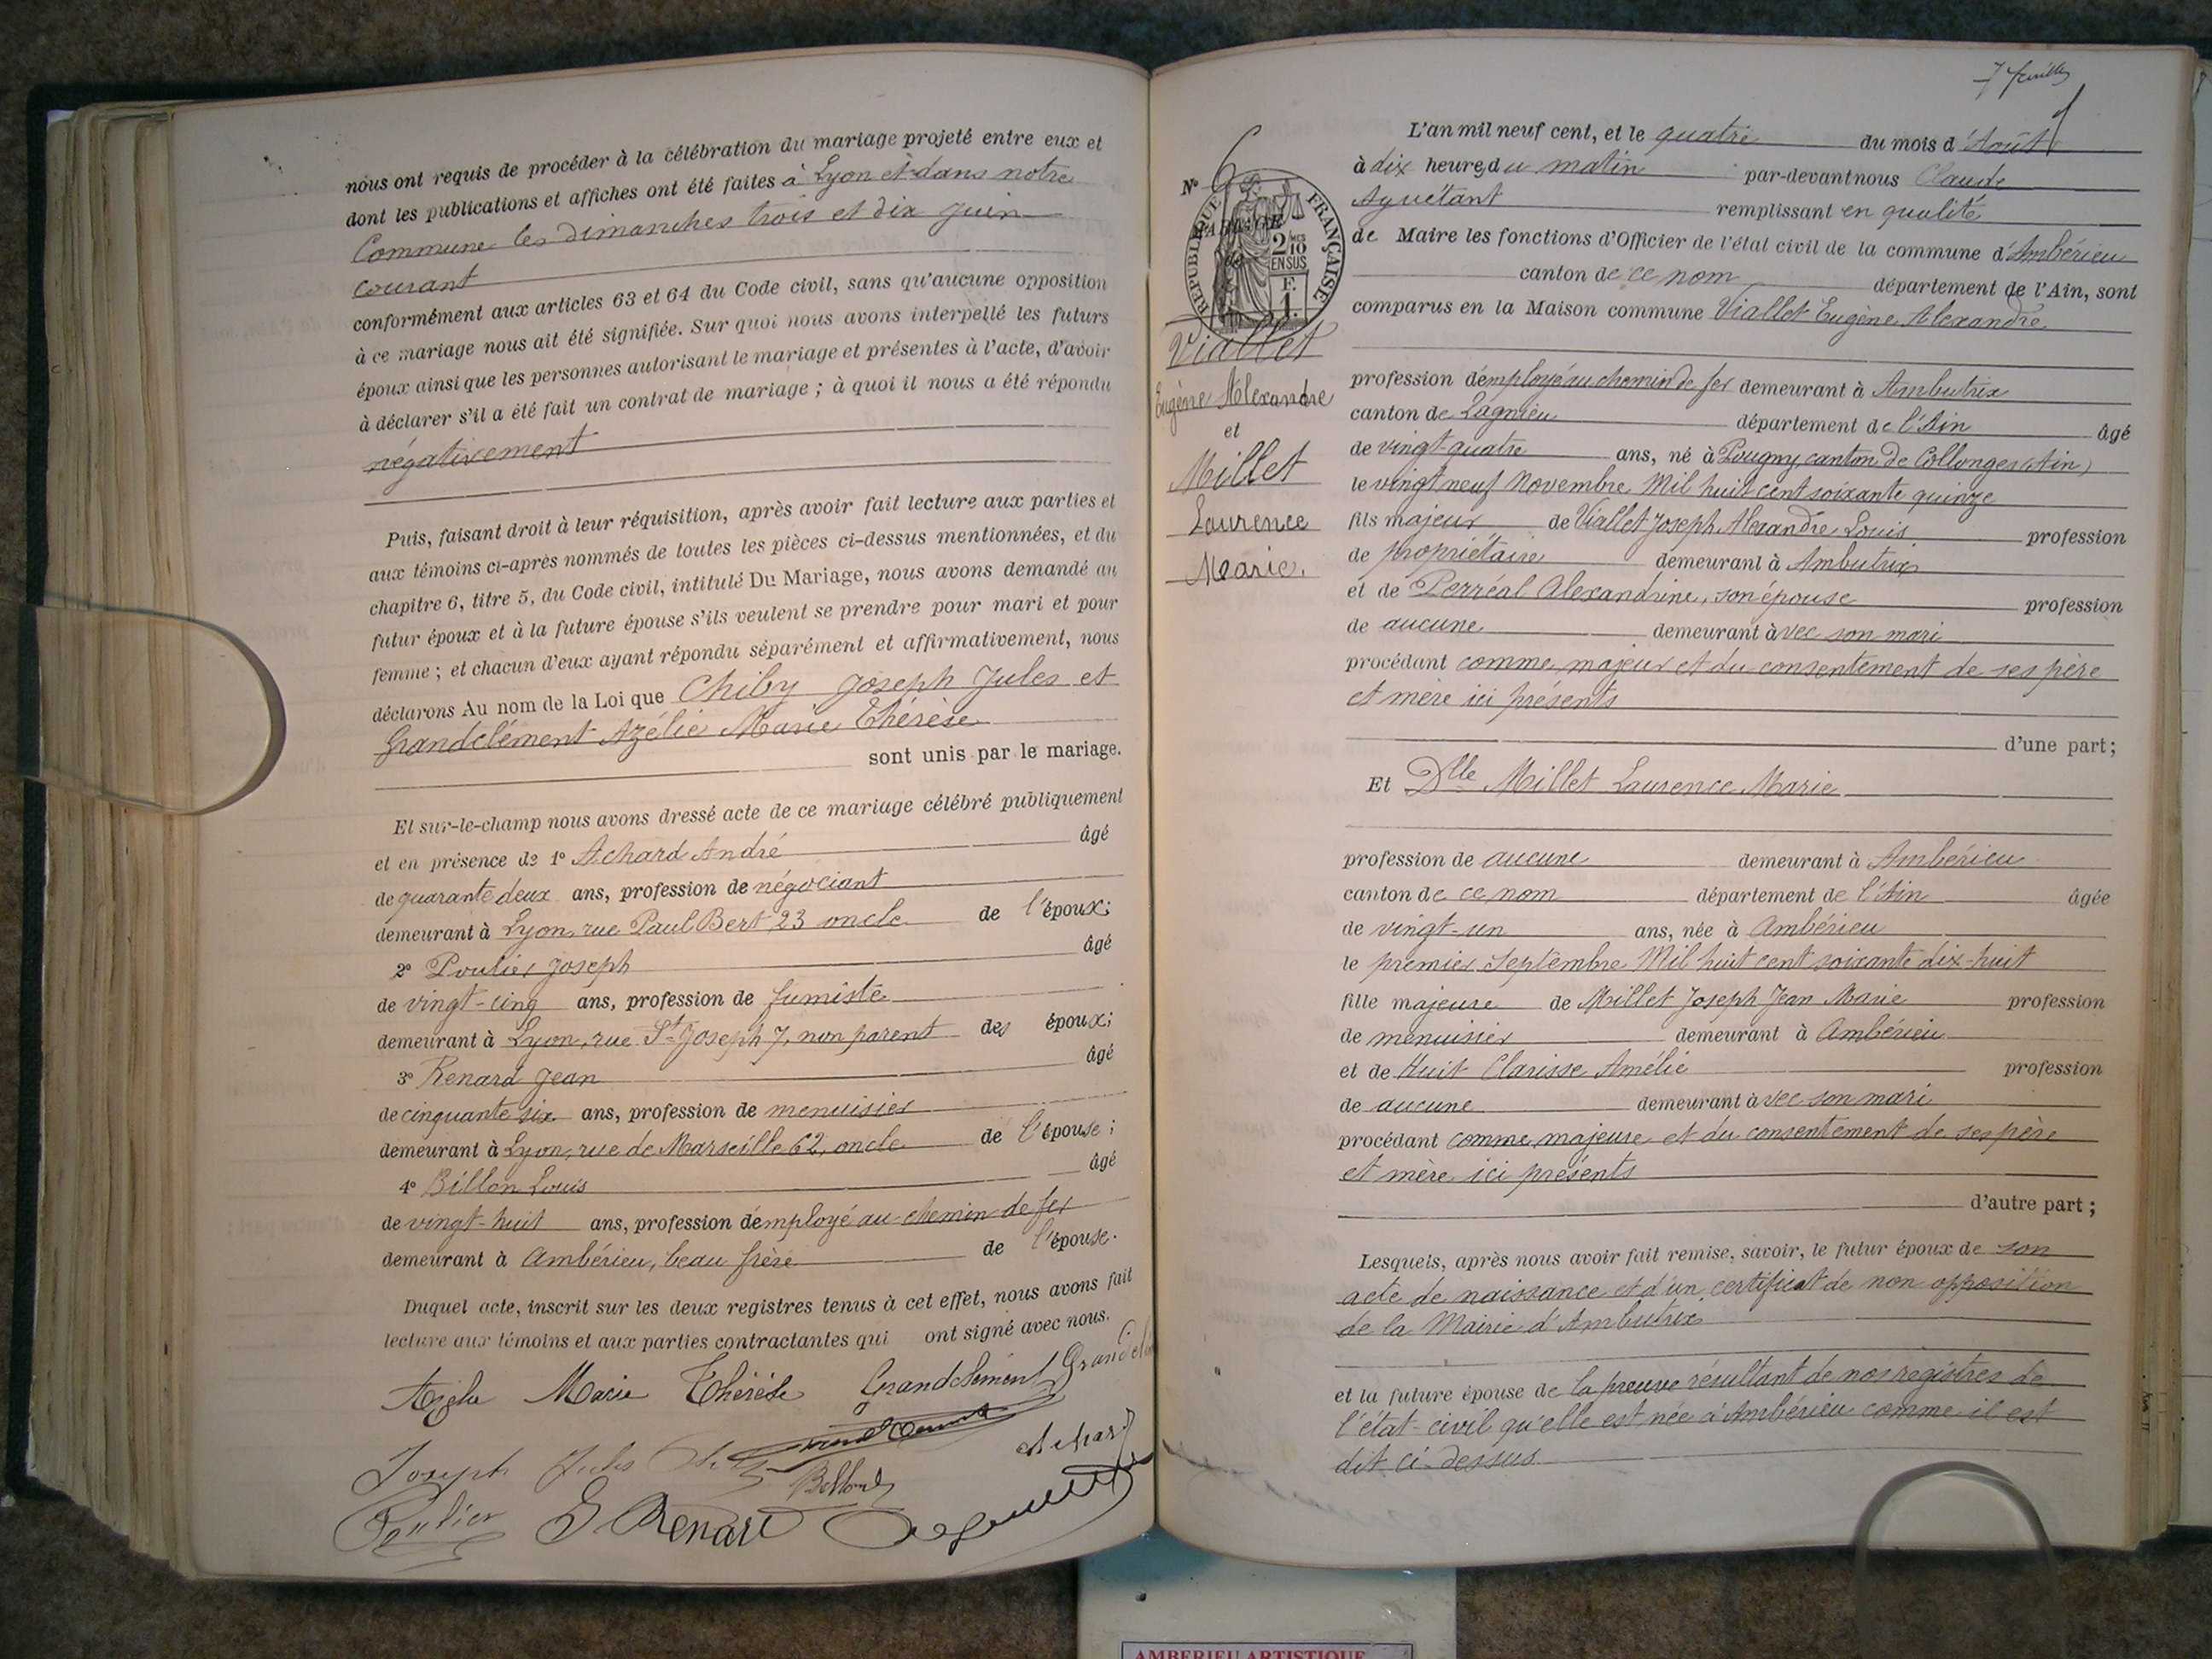 nous ont requis de procéder à la célébration du mariage projeté entre eux et
dont les publications et affiches ont été faites à Lyon et dans notre
Commune les dimanches trois et dix juin
courant
conformément aux articles 63 et 64 du Code civil, sans qu'aucune opposition
à ce mariage nous ait été signifiée. Sur quoi nous avons interpellé les futurs
époux ainsi que les personnes autorisant le mariage et présentes à l'acte, d'avoir
à déclarer s'il a été fait un contrat de mariage ; à quoi il nous a été répondu
négativement
Puis, faisant droit à leur réquisition, après avoir fait lecture aux parties et
aux témoins ci-après nommés de toutes les pièces ci-dessus mentionnées, et du
chapitre 6, titre 5, du Code civil, intitulé Du Mariage, nous avons demandé au
futur époux et à la future épouse s'ils veulent se prendre pour mari et pour
femme ; et chacun d'eux ayant répondu séparément et affirmativement, nous
déclarons Au nom de la Loi que Chiby Joseph Jules et
Grandclément Azélie Marie Thérèse
sont unis par le mariage.
Et sur-le-champ nous avons dressé acte de ce mariage célébré publiquement
et en présence de 1° Achard André âgé
de quarante deux ans, profession de négociant
demeurant à Lyon, rue Paul Bert 23 oncle de l'époux;
2° Poulier Joseph âgé
de vingt-cinq ans, profession de fumiste
demeurant à Lyon, rue St Joseph 7, non parent des époux;
3° Renard Jean âgé
de cinquante six ans, profession de menuisier
demeurant à Lyon, rue de Marseille 62, oncle de l'épouse;
4° Billon Louis âgé
de vingt-huit ans, profession d'employé au chemin de fer
demeurant à Ambérieu, beau frère de l'épouse.
Duquel acte, inscrit sur les deux registres tenus à cet effet, nous avons fait
lecture aux témoins et aux parties contractantes qui ont signé avec nous.
Marie Thérèse Grandclément
Joseph Jules Achard
Poulier Renard
7 feuille
L'an mil neuf cent, et le quatre du mois d'Août
à dix heures du matin par-devant nous Claude
Aguétant remplissant en qualité
de Maire les fonctions d'Officier de l'état civil de la commune d'Ambérieu
canton de ce nom département de l'Ain, sont
comparus en la Maison commune Viallet Eugène Alexandre
N° 6
RÉPUBLIQUE FRANÇAISE
2/10 EN SUS
F. 1.
MARIAGE
de
Viallet
Eugène Alexandre
et
Millet
Laurence
Marie.
profession d'employé au chemin de fer demeurant à Ambutrix
canton de Lagnieu département de l'Ain âgé
de vingt-quatre ans, né à Pougny, canton de Collonges (Ain)
le vingt neuf Novembre Mil huit cent soixante quinze
fils majeur de Viallet Joseph Alexandre Louis profession
de propriétaire demeurant à Ambutrix
et de Perréal Alexandrine, son épouse profession
de aucune demeurant avec son mari
procédant comme majeur et du consentement de ses père
et mère ici présents
d'une part;
Et Dlle Millet Laurence Marie
profession de aucune demeurant à Ambérieu
canton de ce nom département de l'Ain âgée
de vingt-un ans, née à Ambérieu
le premier Septembre Mil huit cent soixante dix-huit
fille majeure de Millet Joseph Jean Marie profession
de menuisier demeurant à Ambérieu
et de Huit Clarisse Amélie profession
de aucune demeurant avec son mari
procédant comme majeure et du consentement de ses père
et mère ici présents
d'autre part;
Lesquels, après nous avoir fait remise, savoir, le futur époux de son
acte de naissance et d'un certificat de non opposition
de la Mairie d'Ambutrix
et la future épouse de la preuve résultant de nos registres de
l'état-civil qu'elle est née à Ambérieu comme il est
dit ci-dessus
AMBERIEU ARTISTIQUE